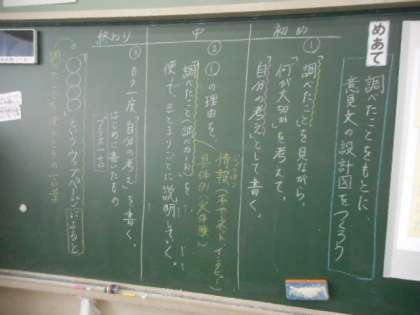 めあて
調べたことをもとに、
意見文の設計図をつくろう
初め
①「調べたこと」を見ながら、
「何が大切か」を考えて、
「自分の考え」として書く。
中
②①の理由を、
調べたこと(調べカード)を
使って、まとまりごとに説明していく。
終わり
③もう一度「自分の考え」を書く。
はじめに書いたもの
「○○○○」というウェブページによると